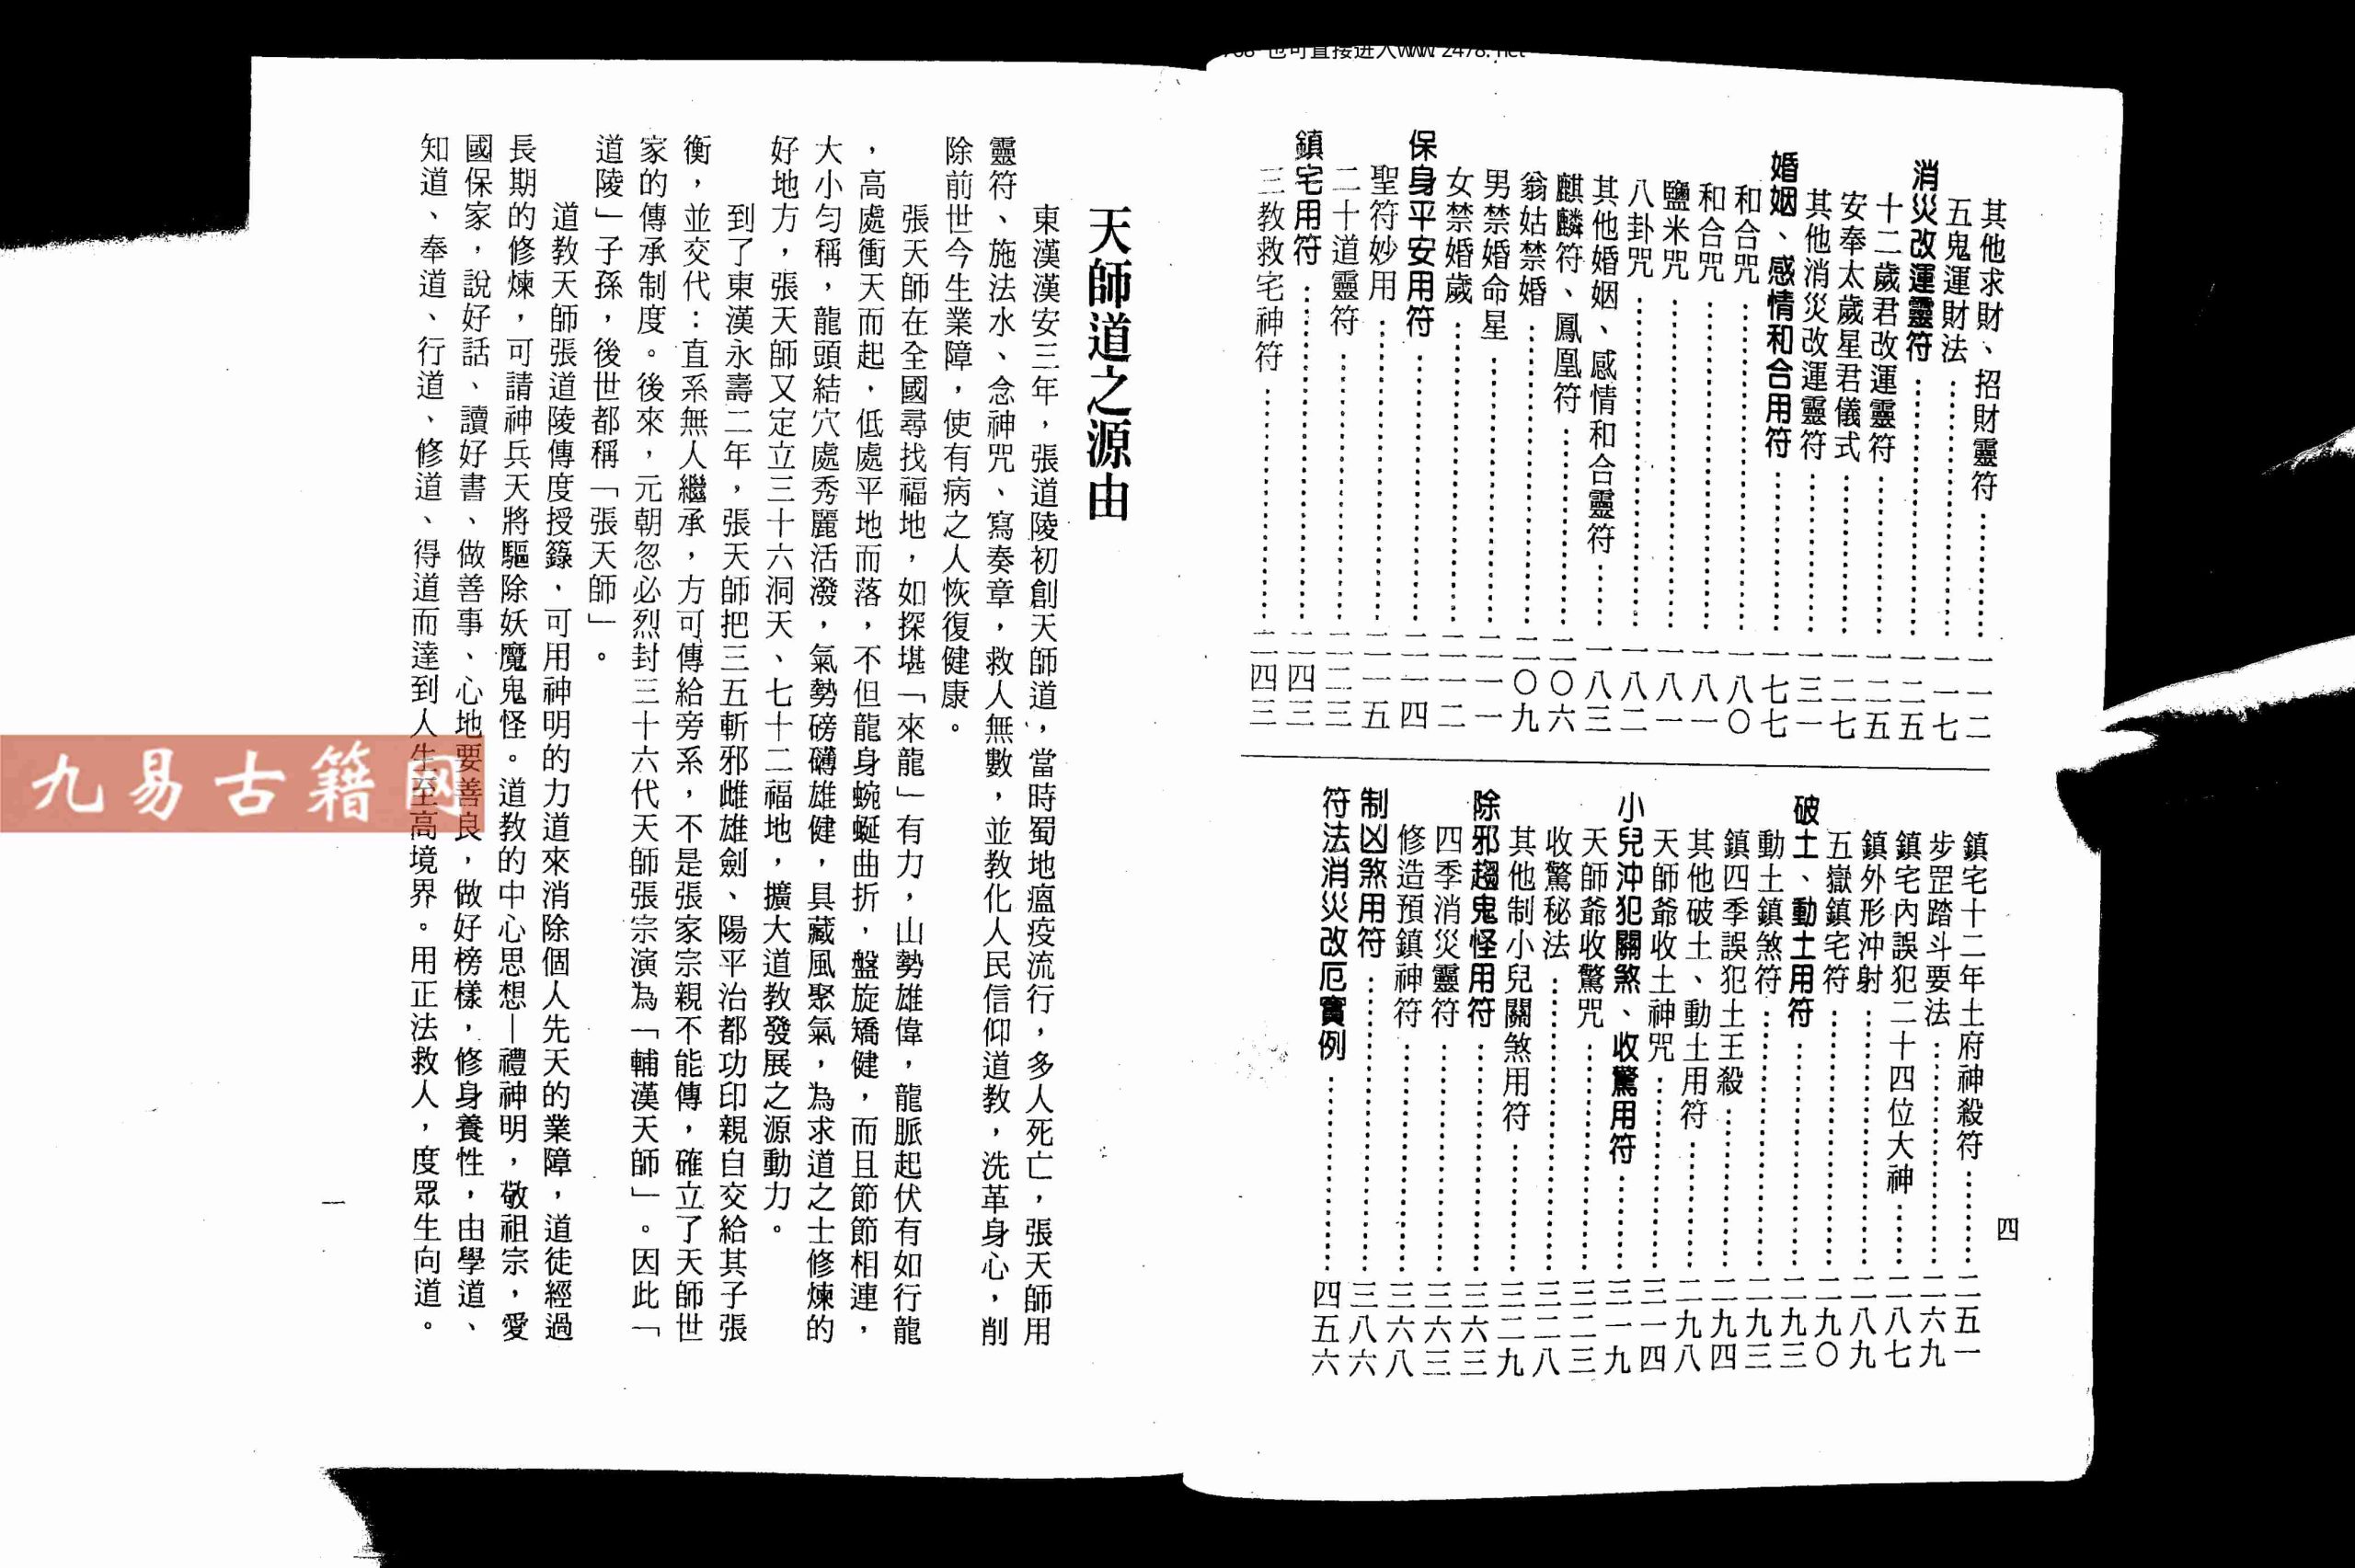 也可直接进入www.2478.net
四
其他求財、招財靈符…………一一二
五鬼運財法…………一一七
消災改運靈符…………一二五
十二歲君改運靈符…………一二五
安奉太歲星君儀式…………一二七
其他消災改運靈符…………一三一
婚姻、感情和合用符…………一七七
和合咒…………一八〇
和合咒…………一八一
鹽米咒…………一八一
八卦咒…………一八二
其他婚姻、感情和合靈符…………一八三
麒麟符、鳳凰符…………二〇六
翁姑禁婚…………二〇九
男禁婚命星…………二一一
女禁婚歲…………二一二
保身平安用符…………二一四
聖符妙用…………二一五
二十道靈符…………二二三
鎮宅用符…………二四三
三教救宅神符…………二四三
鎮宅十二年土府神殺符…………二五一
步罡踏斗要法…………二六九
鎮宅內誤犯二十四位大神…………二八七
鎮外形沖射…………二八九
五嶽鎮宅符…………二九〇
破土、動土用符…………二九三
動土鎮煞符…………二九三
鎮四季誤犯土王殺…………二九四
其他破土、動土用符…………二九八
天師爺收土神咒…………三一四
小兒沖犯關煞、收驚用符…………三一九
天師爺收驚咒…………三二三
收驚秘法…………三二八
其他制小兒關煞用符…………三二九
除邪趨鬼怪用符…………三六三
四季消災靈符…………三六三
修造預鎮神符…………三六八
制凶煞用符…………三八六
符法消災改厄實例…………四五六
天師道之源由
東漢漢安三年，張道陵初創天師道，當時蜀地瘟疫流行，多人死亡，張天師用
靈符、施法水、念神咒、寫奏章，救人無數，並教化人民信仰道教，洗革身心，削
除前世今生業障，使有病之人恢復健康。
張天師在全國尋找福地，如探堪「來龍」有力，山勢雄偉，龍脈起伏有如行龍
，高處衝天而起，低處平地而落，不但龍身蜿蜒曲折，盤旋矯健，而且節節相連，
大小勻稱，龍頭結穴處秀麗活潑，氣勢磅礡雄健，具藏風聚氣，為求道之士修煉的
好地方，張天師又定立三十六洞天、七十二福地，擴大道教發展之源動力。
到了東漢永壽二年，張天師把三五斬邪雌雄劍、陽平治都功印親自交給其子張
衡，並交代：直系無人繼承，方可傳給旁系，不是張家宗親不能傳，確立了天師世
家的傳承制度。後來，元朝忽必烈封三十六代天師張宗演為「輔漢天師」。因此「
道陵」子孫，後世都稱「張天師」。
道教天師張道陵傳度授籙，可用神明的力道來消除個人先天的業障，道徒經過
長期的修煉，可請神兵天將驅除妖魔鬼怪。道教的中心思想—禮神明，敬祖宗，愛
國保家，說好話、讀好書、做善事、心地要善良，做好榜樣，修身養性，由學道、
知道、奉道、行道、修道、得道而達到人生至高境界。用正法救人，度眾生向道。
一
九易古籍网